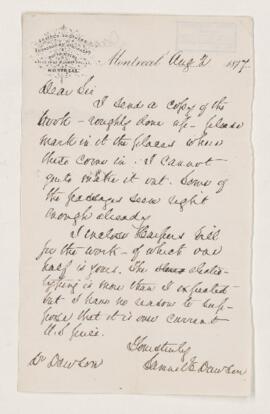 MONTREAL
Montreal Aug 2 1877
Dear Sir
I send a copy of the
book – roughly done up – please
mark in it the places where
these come in. I cannot
quite make it out. Some of
the passages seem right
enough already
I enclose Harpers bill
for the work – of which one
half is yours. The
typing is more than I expected
but I have no reason to sup-
pose that it is over current
U.S. price.
Yours truly
Samuel E. Dawson
Dr Dawson